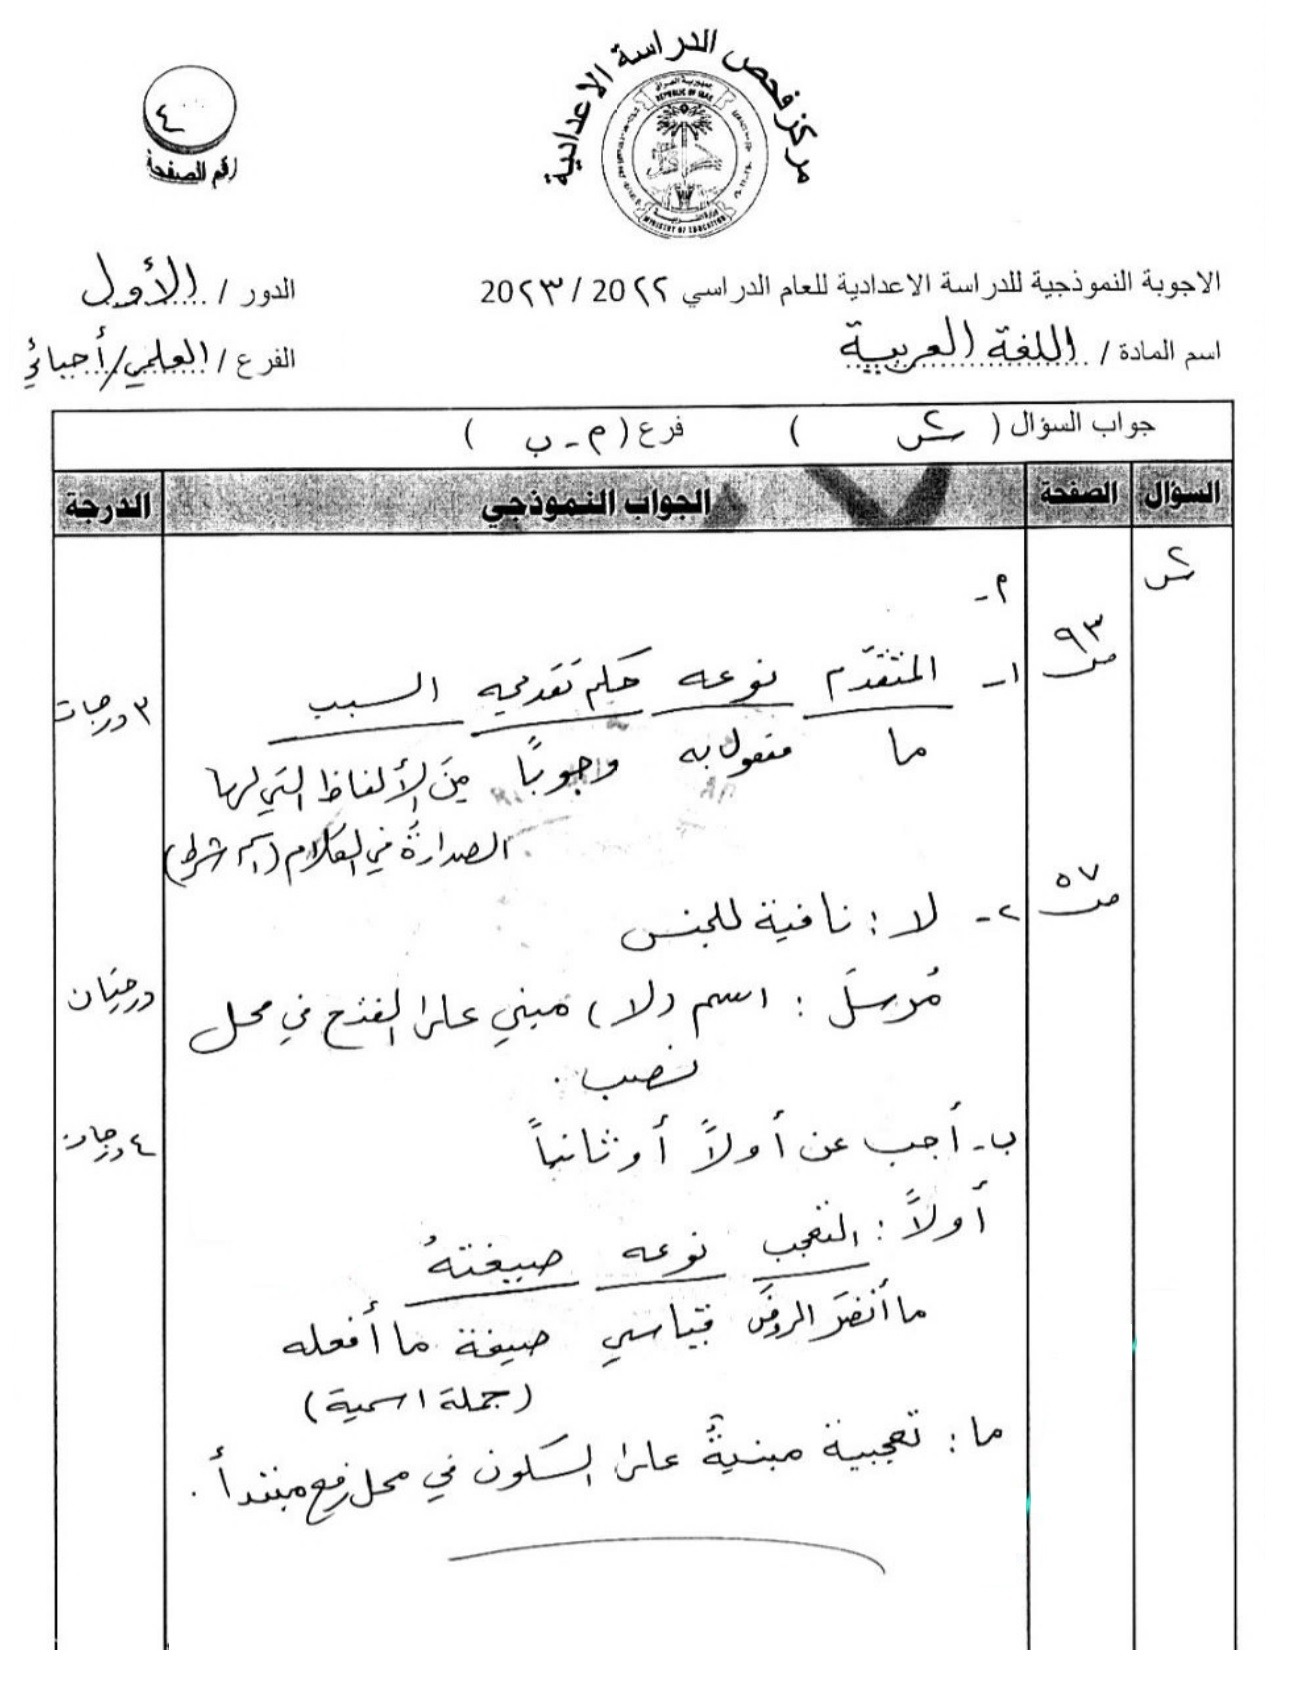 مركز فحص الدراسة الاعدادية
جمهورية العراق
REPUBLIC OF IRAQ
وزارة التربية
MINISTRY OF EDUCATION
٤
رقم الصفحة
الاجوبة النموذجية للدراسة الاعدادية للعام الدراسي 20٢٢ / 20٢٣
الدور / الأول
اسم المادة / اللغة العربية
الفرع / العلمي/أحيائي
جواب السؤال ( س٢ ) فرع ( م - ب )
السؤال الصفحة الجواب النموذجي الدرجة
س٢
م-
ص٩٣
١- المتقدّم نوعه حكم تقديمه السبب
٣ درجات
ما مفعول به وجوبًا مِنَ الألفاظ التي لها
الصدارةُ في الكلام (اسم شرط)
ص٥٧
٢- لا : نافية للجنس
درجتان
مُرسلَ : اسم (لا) مبني على الفتح في محل
نصب .
ب- أجب عن أولاً أو ثانياً
٤ درجات
أولاً : التعجب نوعه صيغتهُ
ما أنضرَ الروضَ قياسي صيغة ما أفعله
(جملة اسمية)
ما : تعجبية مبنيةٌ على السكون في محل رفع مبتدأ .